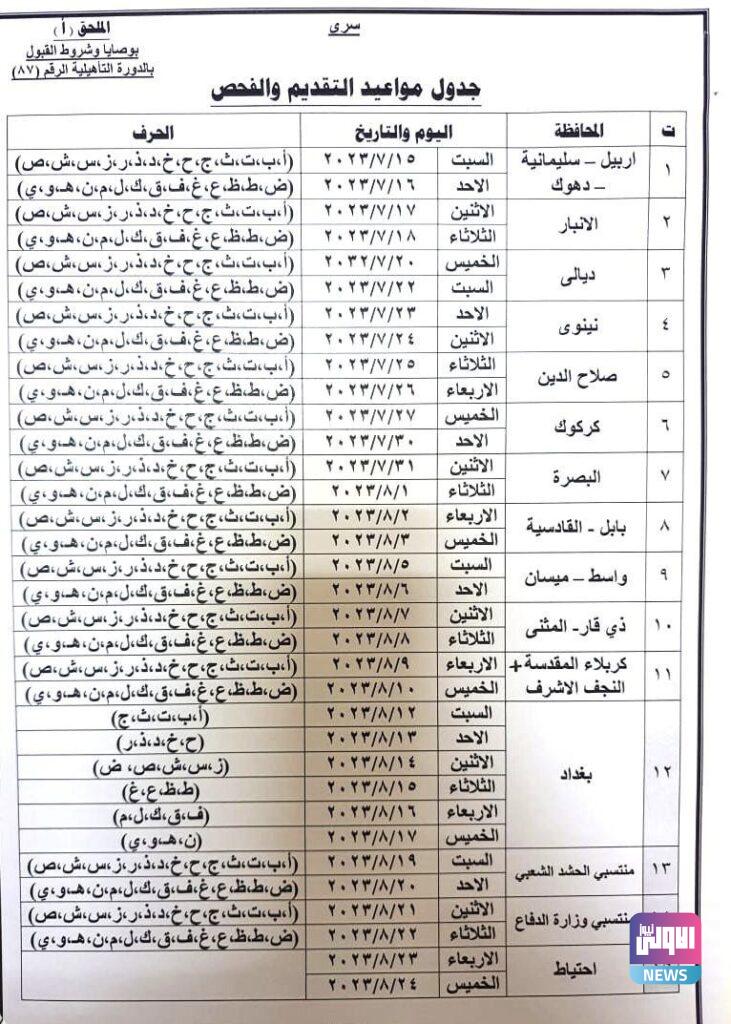 سري
الملحق (أ)
بوصايا وشروط القبول
بالدورة التأهيلية الرقم (٨٧)
جدول مواعيد التقديم والفحص
ت المحافظة اليوم والتاريخ الحرف
١ اربيل – سليمانية – دهوك السبت ٢٠٢٣/٧/١٥ (أ،ب،ت،ث،ج،ح،خ،د،ذ،ر،ز،س،ش،ص)
الاحد ٢٠٢٣/٧/١٦ (ض،ط،ظ،ع،غ،ف،ق،ك،ل،م،ن،هـ،و،ي)
٢ الانبار الاثنين ٢٠٢٣/٧/١٧ (أ،ب،ت،ث،ج،ح،خ،د،ذ،ر،ز،س،ش،ص)
الثلاثاء ٢٠٢٣/٧/١٨ (ض،ط،ظ،ع،غ،ف،ق،ك،ل،م،ن،هـ،و،ي)
٣ ديالى الخميس ٢٠٣٢/٧/٢٠ (أ،ب،ت،ث،ج،ح،خ،د،ذ،ر،ز،س،ش،ص)
السبت ٢٠٢٣/٧/٢٢ (ض،ط،ظ،ع،غ،ف،ق،ك،ل،م،ن،هـ،و،ي)
٤ نينوى الاحد ٢٠٢٣/٧/٢٣ (أ،ب،ت،ث،ج،ح،خ،د،ذ،ر،ز،س،ش،ص)
الاثنين ٢٠٢٣/٧/٢٤ (ض،ط،ظ،ع،غ،ف،ق،ك،ل،م،ن،هـ،و،ي)
٥ صلاح الدين الثلاثاء ٢٠٢٣/٧/٢٥ (أ،ب،ت،ث،ج،ح،خ،د،ذ،ر،ز،س،ش،ص)
الاربعاء ٢٠٢٣/٧/٢٦ (ض،ط،ظ،ع،غ،ف،ق،ك،ل،م،ن،هـ،و،ي)
٦ كركوك الخميس ٢٠٢٣/٧/٢٧ (أ،ب،ت،ث،ج،ح،خ،د،ذ،ر،ز،س،ش،ص)
الاحد ٢٠٢٣/٧/٣٠ (ض،ط،ظ،ع،غ،ف،ق،ك،ل،م،ن،هـ،و،ي)
٧ البصرة الاثنين ٢٠٢٣/٧/٣١ (أ،ب،ت،ث،ج،ح،خ،د،ذ،ر،ز،س،ش،ص)
الثلاثاء ٢٠٢٣/٨/١ (ض،ط،ظ،ع،غ،ف،ق،ك،ل،م،ن،هـ،و،ي)
٨ بابل - القادسية الاربعاء ٢٠٢٣/٨/٢ (أ،ب،ت،ث،ج،ح،خ،د،ذ،ر،ز،س،ش،ص)
الخميس ٢٠٢٣/٨/٣ (ض،ط،ظ،ع،غ،ف،ق،ك،ل،م،ن،هـ،و،ي)
٩ واسط – ميسان السبت ٢٠٢٣/٨/٥ (أ،ب،ت،ث،ج،ح،خ،د،ذ،ر،ز،س،ش،ص)
الاحد ٢٠٢٣/٨/٦ (ض،ط،ظ،ع،غ،ف،ق،ك،ل،م،ن،هـ،و،ي)
١٠ ذي قار- المثنى الاثنين ٢٠٢٣/٨/٧ (أ،ب،ت،ث،ج،ح،خ،د،ذ،ر،ز،س،ش،ص)
الثلاثاء ٢٠٢٣/٨/٨ (ض،ط،ظ،ع،غ،ف،ق،ك،ل،م،ن،هـ،و،ي)
١١ كربلاء المقدسة + النجف الاشرف الاربعاء ٢٠٢٣/٨/٩ (أ،ب،ت،ث،ج،ح،خ،د،ذ،ر،ز،س،ش،ص)
الخميس ٢٠٢٣/٨/١٠ (ض،ط،ظ،ع،غ،ف،ق،ك،ل،م،ن،هـ،و،ي)
١٢ بغداد السبت ٢٠٢٣/٨/١٢ (أ،ب،ت،ث،ج)
الاحد ٢٠٢٣/٨/١٣ (ح،خ،د،ذ،ر)
الاثنين ٢٠٢٣/٨/١٤ (ز،س،ش،ص، ض)
الثلاثاء ٢٠٢٣/٨/١٥ (ط،ظ،ع،غ)
الاربعاء ٢٠٢٣/٨/١٦ (ف،ق،ك،ل،م)
الخميس ٢٠٢٣/٨/١٧ (ن،هـ،و،ي)
١٣ منتسبي الحشد الشعبي السبت ٢٠٢٣/٨/١٩ (أ،ب،ت،ث،ج،ح،خ،د،ذ،ر،ز،س،ش،ص)
الاحد ٢٠٢٣/٨/٢٠ (ض،ط،ظ،ع،غ،ف،ق،ك،ل،م،ن،هـ،و،ي)
منتسبي وزارة الدفاع الاثنين ٢٠٢٣/٨/٢١ (أ،ب،ت،ث،ج،ح،خ،د،ذ،ر،ز،س،ش،ص)
الثلاثاء ٢٠٢٣/٨/٢٢ (ض،ط،ظ،ع،غ،ف،ق،ك،ل،م،ن،هـ،و،ي)
احتياط الاربعاء ٢٠٢٣/٨/٢٣
الخميس ٢٠٢٣/٨/٢٤
الاولى نيوز
NEWS